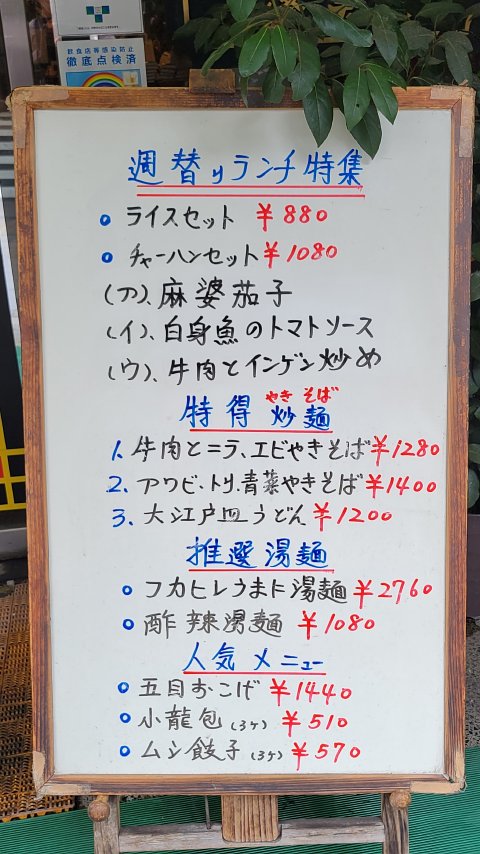 飲食店等感染防止
徹底点検済
週替りランチ特集
ライスセット ¥880
チャーハンセット ¥1080
(ア)、麻婆茄子
(イ)、白身魚のトマトソース
(ウ)、牛肉とインゲン炒め
やき そば
特得 炒麺
1. 牛肉とニラ、エビやきそば ¥1280
2. アワビ、トリ、青菜やきそば ¥1400
3. 大江戸皿うどん ¥1200
推選湯麺
フカヒレうまに湯麺 ¥2760
酢辣湯麺 ¥1080
人気メニュー
五目おこげ ¥1440
小龍包(3ケ) ¥510
ムシ餃子(3ケ) ¥570